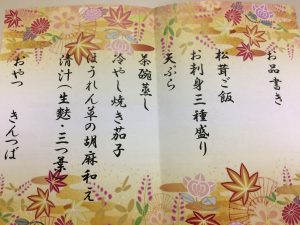 お品書き
松茸ご飯
お刺身三種盛り
天ぷら
茶碗蒸し
冷やし焼き茄子
ほうれん草の胡麻和え
清汁(生麩・三つ葉)
おやつ　きんつば